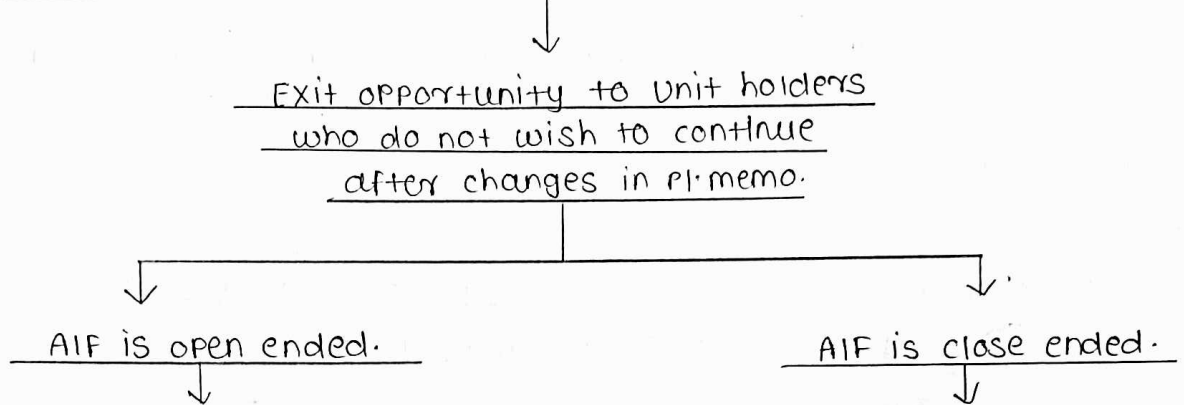 Exit opportunity to unit holders
who do not wish to continue
after changes in Pl. memo.
AIF is open ended.
AIF is close ended.